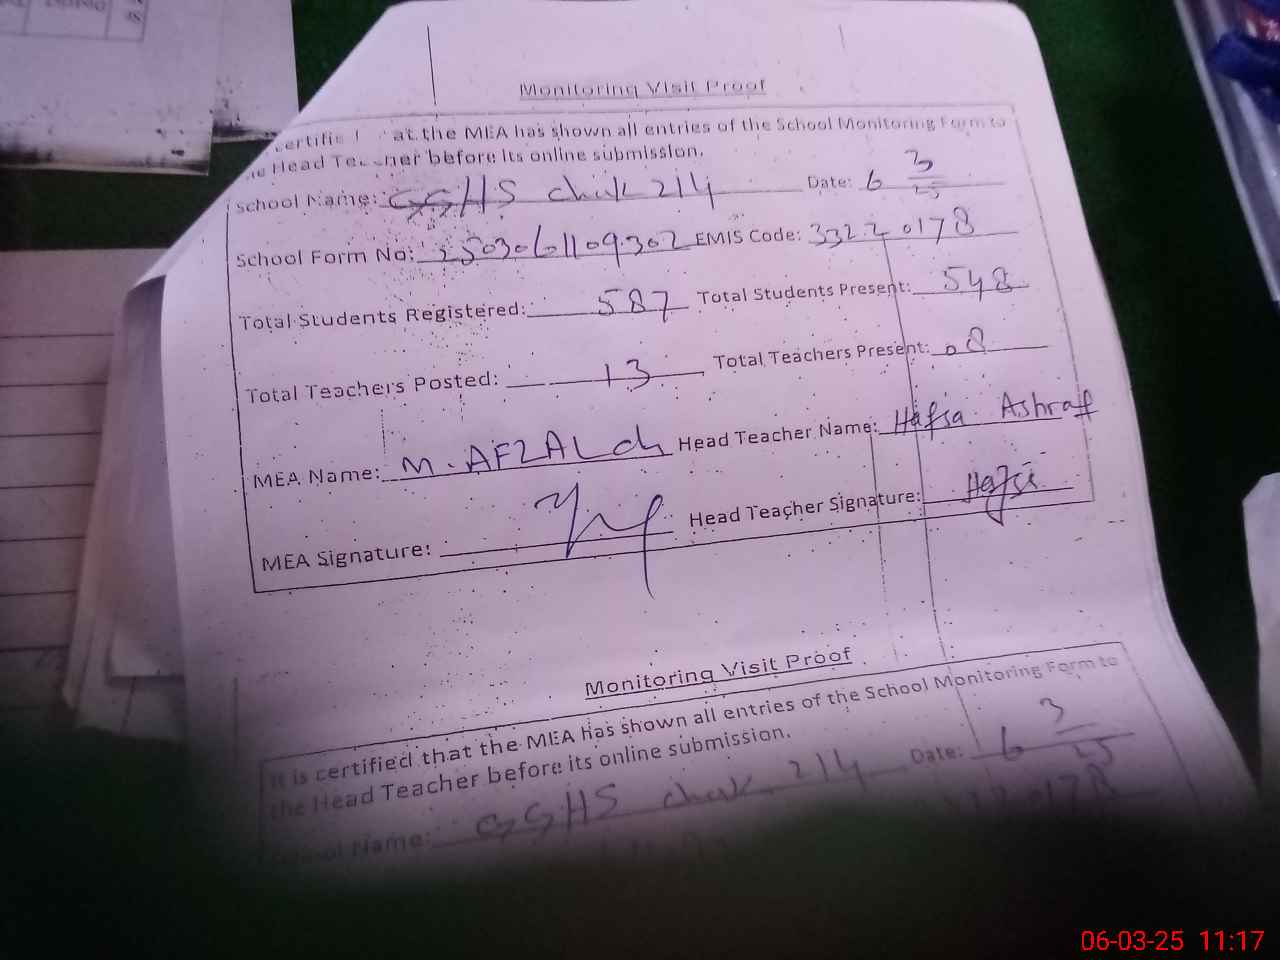 Monitoring Visit Proof
certifie at the MEA has shown all entries of the School Monitoring Form to
Head Teacher before its online submission.
School Name: GGHS chak 214 Date: 6 3/25
School Form No: 2503061109302 EMIS Code: 33220178
Total Students Registered: 587 Total Students Present: 548
Total Teachers Posted: 13 Total Teachers Present: 08
MEA Name: M. AFZAL ch Head Teacher Name: Hafsa Ashraf
MEA Signature: Head Teacher Signature: Hafsa
Monitoring Visit Proof
It is certified that the MEA has shown all entries of the School Monitoring Form to
the Head Teacher before its online submission.
School Name: GGHS chak 214 Date: 6 3/25
0178
06-03-25 11:17